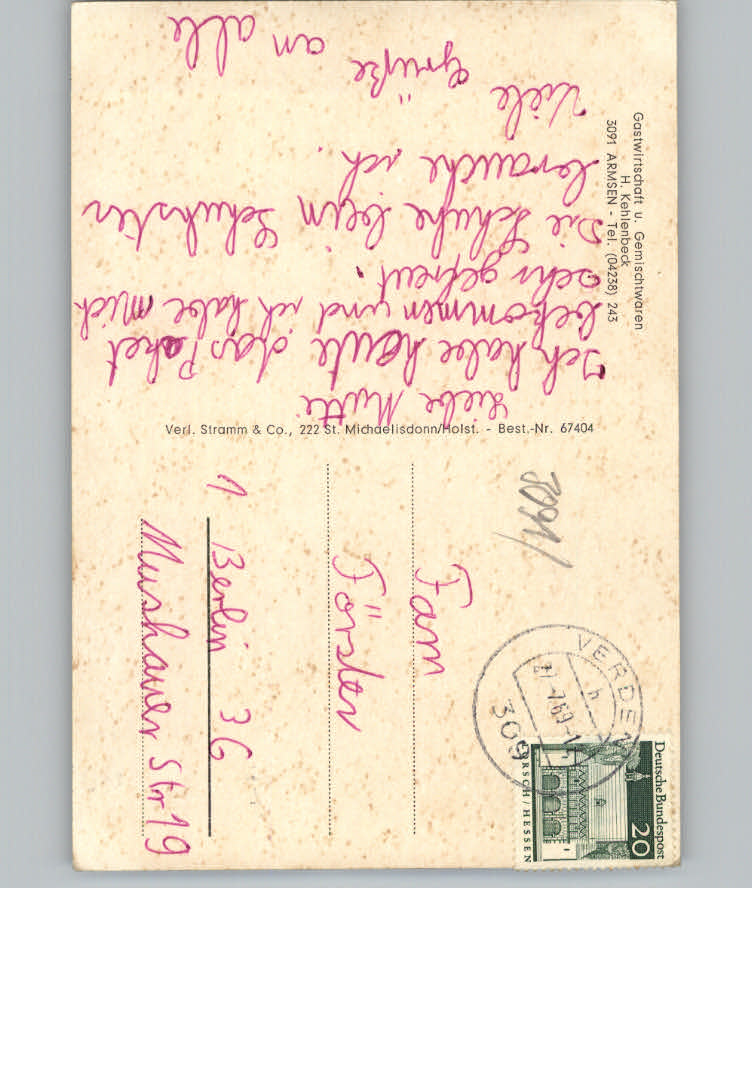 Gastwirtschaft u. Gemischtwaren
H. Kehlenbeck
3091 ARMSEN - Tel. (04238) 243
Liebe Mutti
Ich habe heute das Paket
bekommen und ich habe mich
sehr gefreut.
Die Schuhe beim Schuhster
brauche ich.
Viele
Grüße an alle
Verl. Stramm & Co., 222 St. Michaelisdonn/Holst. - Best.-Nr. 67404
3091/
VERDEN
309
h
Deutsche Bundespost
20
LORSCH / HESSEN
Fam
Förster
1 Berlin 36
Mushauer Str 19